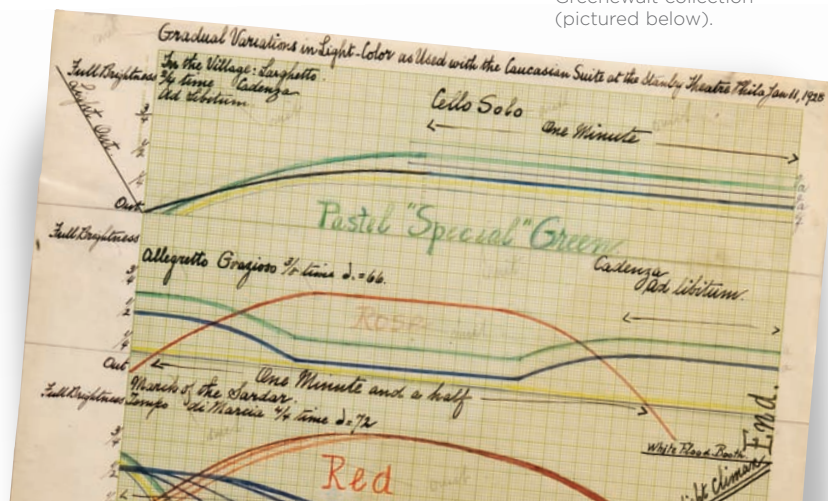 Greenewalt collection
(pictured below).
Gradual Variations in Light-Color as Used with the Caucasian Suite at the Stanley Theatre Phila Jan 11, 1928
Full Brightness
In the Village: Larghetto.
3/4 time Cadenza
Ad Libitum.
Light Out.
3/4
1/2
1/4
Out
Cello Solo
One Minute
Pastel "Special" Green
Full Brightness
Allegretto Grazioso 3/8 time ♩.=66.
Cadenza
Ad libitum.
3/4
1/2
1/4
Out
Rose
One Minute and a half
Full Brightness
March of the Sardar.
Tempo di Marcia 4/4 time ♩=72
3/4
1/2
Red
White Flood Booth.
End.
light climax